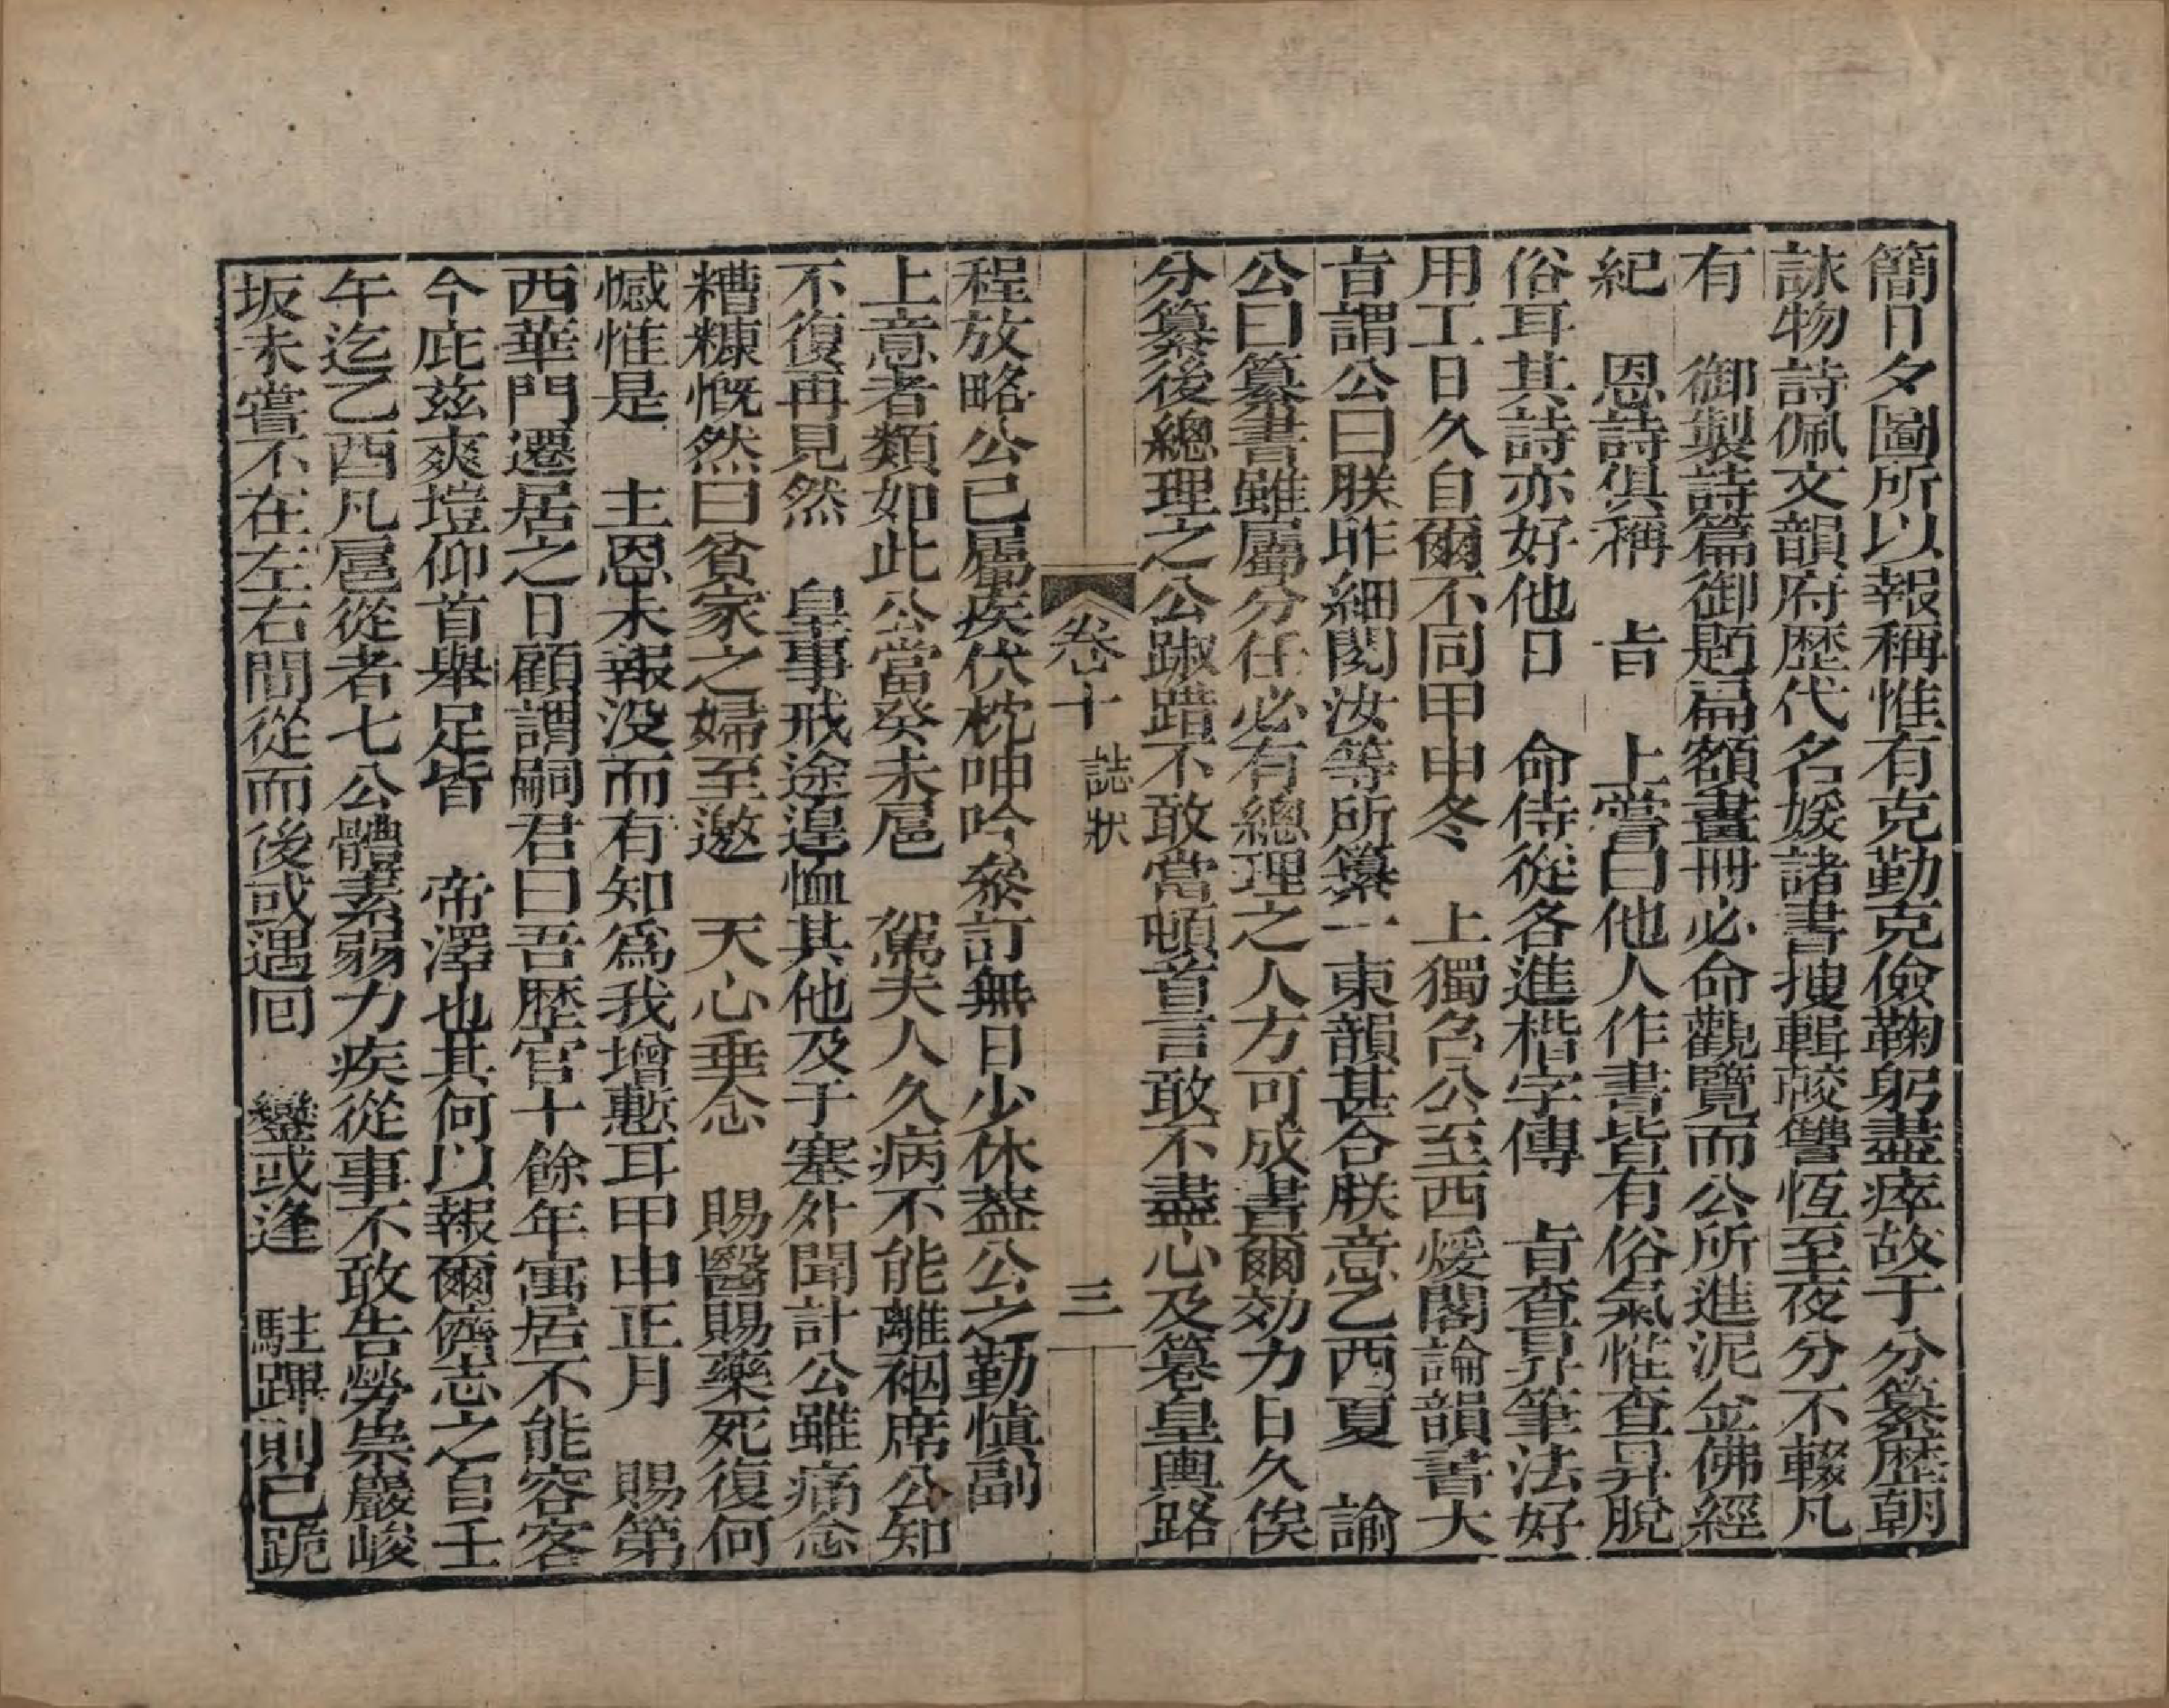 簡日夕圖所以報稱惟有克勤克儉鞠躬盡瘁故于分纂歷朝
詠物詩佩文韻府歷代名媛諸書搜輯較讐恆至夜分不輟凡
有　御製詩篇御題扁額畫冊必命觀覽而公所進泥金佛經
紀　恩詩俱稱　旨　上嘗曰他人作書皆有俗氣惟查昇脫
俗耳其詩亦好他日　命侍從各進楷字傳　旨查昇筆法好
用工日久自爾不同甲申冬　上獨召公至西煖閣論韻書大
旨謂公曰朕昨細閱汝等所纂一東韻甚合朕意乙酉夏　諭
公曰纂書雖屬分任必有總理之人方可成書爾効力日久俟
分纂後總理之公踧踖不敢當頓首言敢不盡心及纂皇輿路
卷十　誌狀　三
程放略公已屬疾伏枕呻吟叅訂無日少休葢公之勤慎副
上意者類如此公當癸未扈　駕夫人久病不能離裀席公知
不復再見然　皇事戒途遑恤其他及于塞外聞訃公雖痛念
糟糠慨然曰貧家之婦至邀　天心垂念　賜醫賜藥死復何
憾惟是　主恩未報沒而有知為我增慙耳甲申正月　賜第
西華門遷居之日顧謂嗣君曰吾歷官十餘年寓居不能容客
今庇茲爽塏仰首舉足皆　帝澤也其何以報爾儕志之自壬
午迄乙酉凡扈從者七公體素弱力疾從事不敢告勞祟巖峻
坂未嘗不在左右間從而後或遇回　鑾或逢　駐蹕則已跪